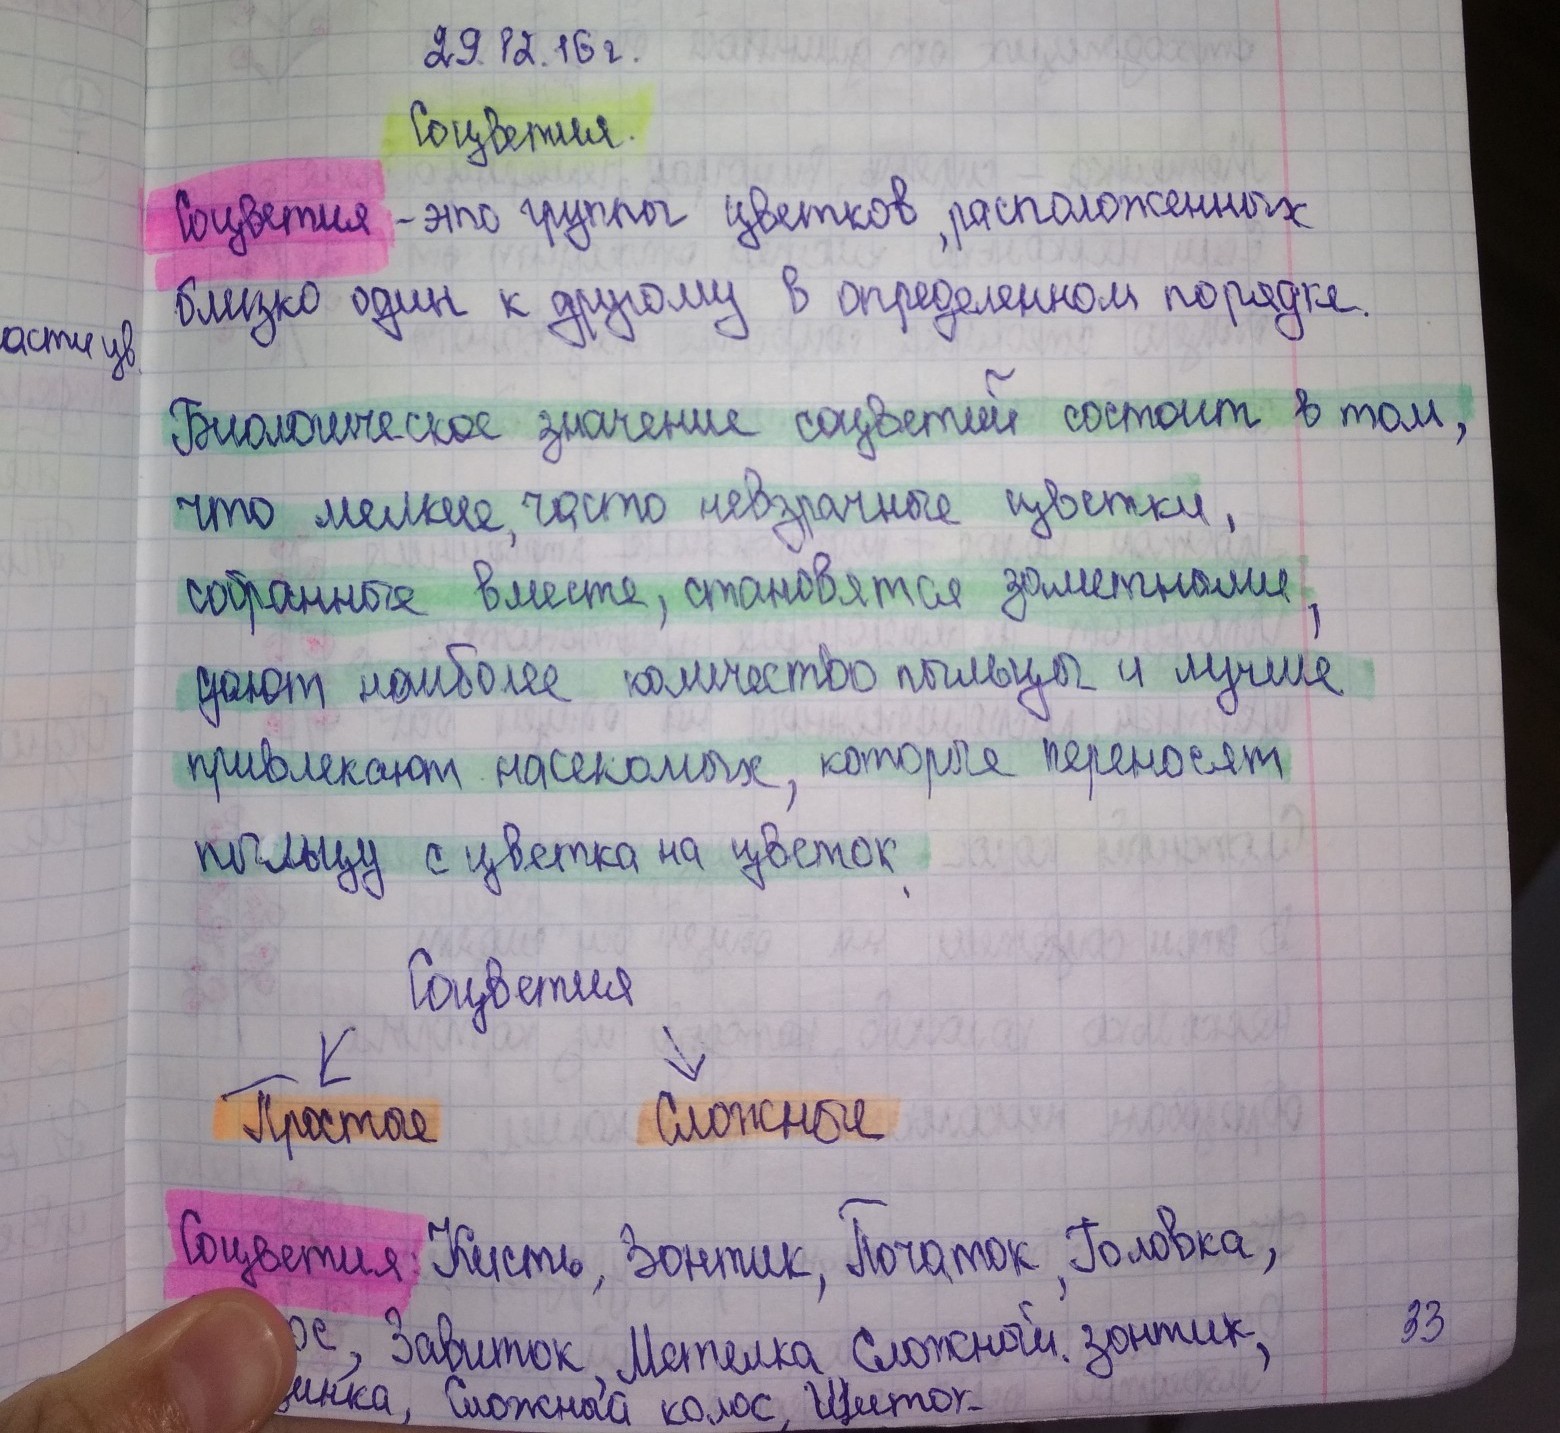 29.12.16 г.
Соцветия.
Соцветия - это группы цветков, расположенных
близко один к другому в определенном порядке.
асти цв.
Биологическое значение соцветий состоит в том,
что мелкие, часто невзрачные цветки,
собранные вместе, становятся заметными,
дают наиболее количество пыльцы и лучше
привлекают насекомых, которые переносят
пыльцу с цветка на цветок.
Соцветия
Простые Сложные
Соцветия: Кисть, Зонтик, Початок, Головка,
ос, Завиток, Метелка Сложный. зонтик,
33
инка, Сложный колос, Щиток-